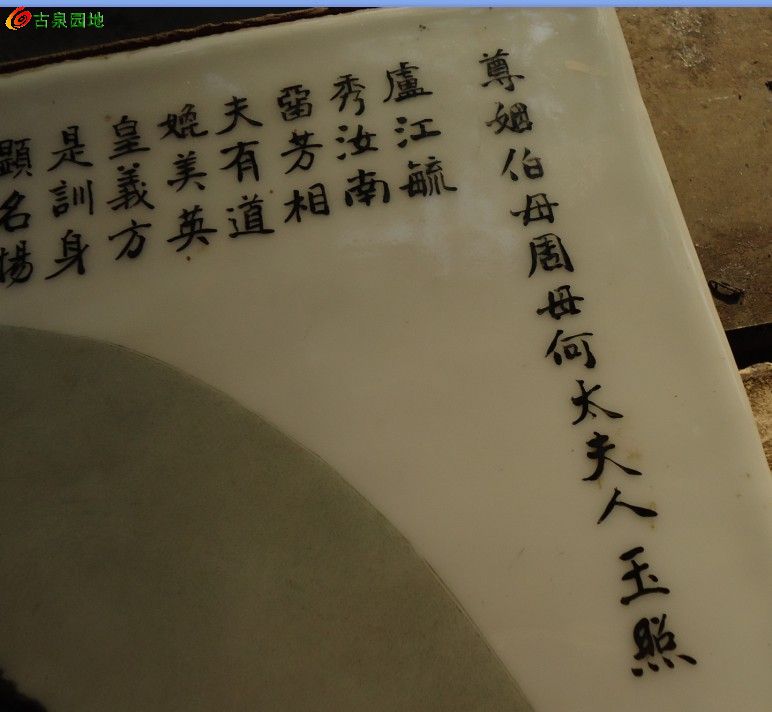 古泉园地
尊姻伯母周母何太夫人玉照
盧江毓
秀汝南
留芳相
夫有道
媲美英
皇義方
是訓身
顯名揚